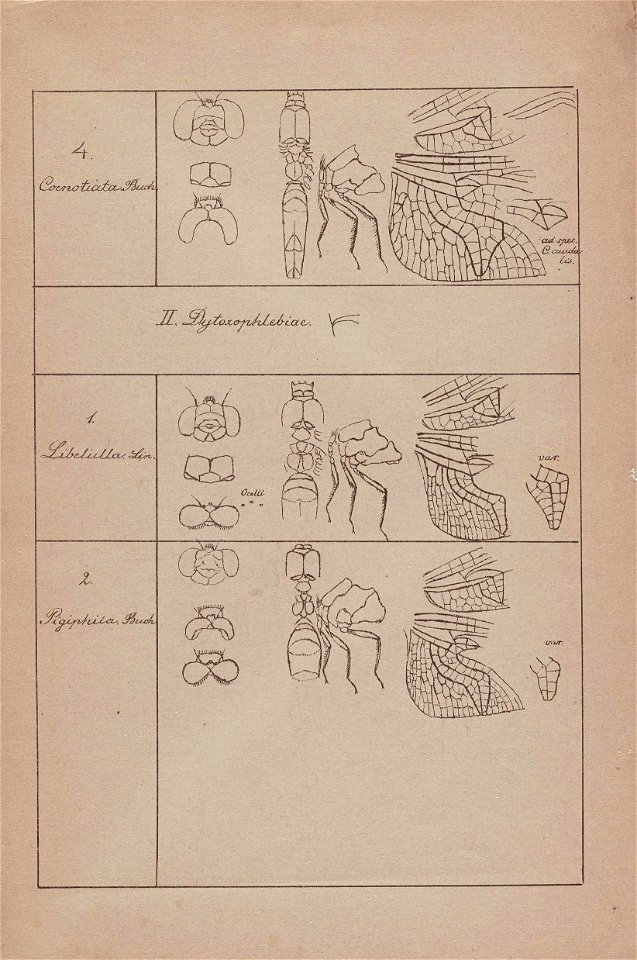 4.
Coenotiata Buch.
ad spec.
C. cauda
lis.
II. Dytoxophlebiae.
1.
Libelulla. Lin.
Ocelli
var.
2.
Pigiphila. Buch.
var.